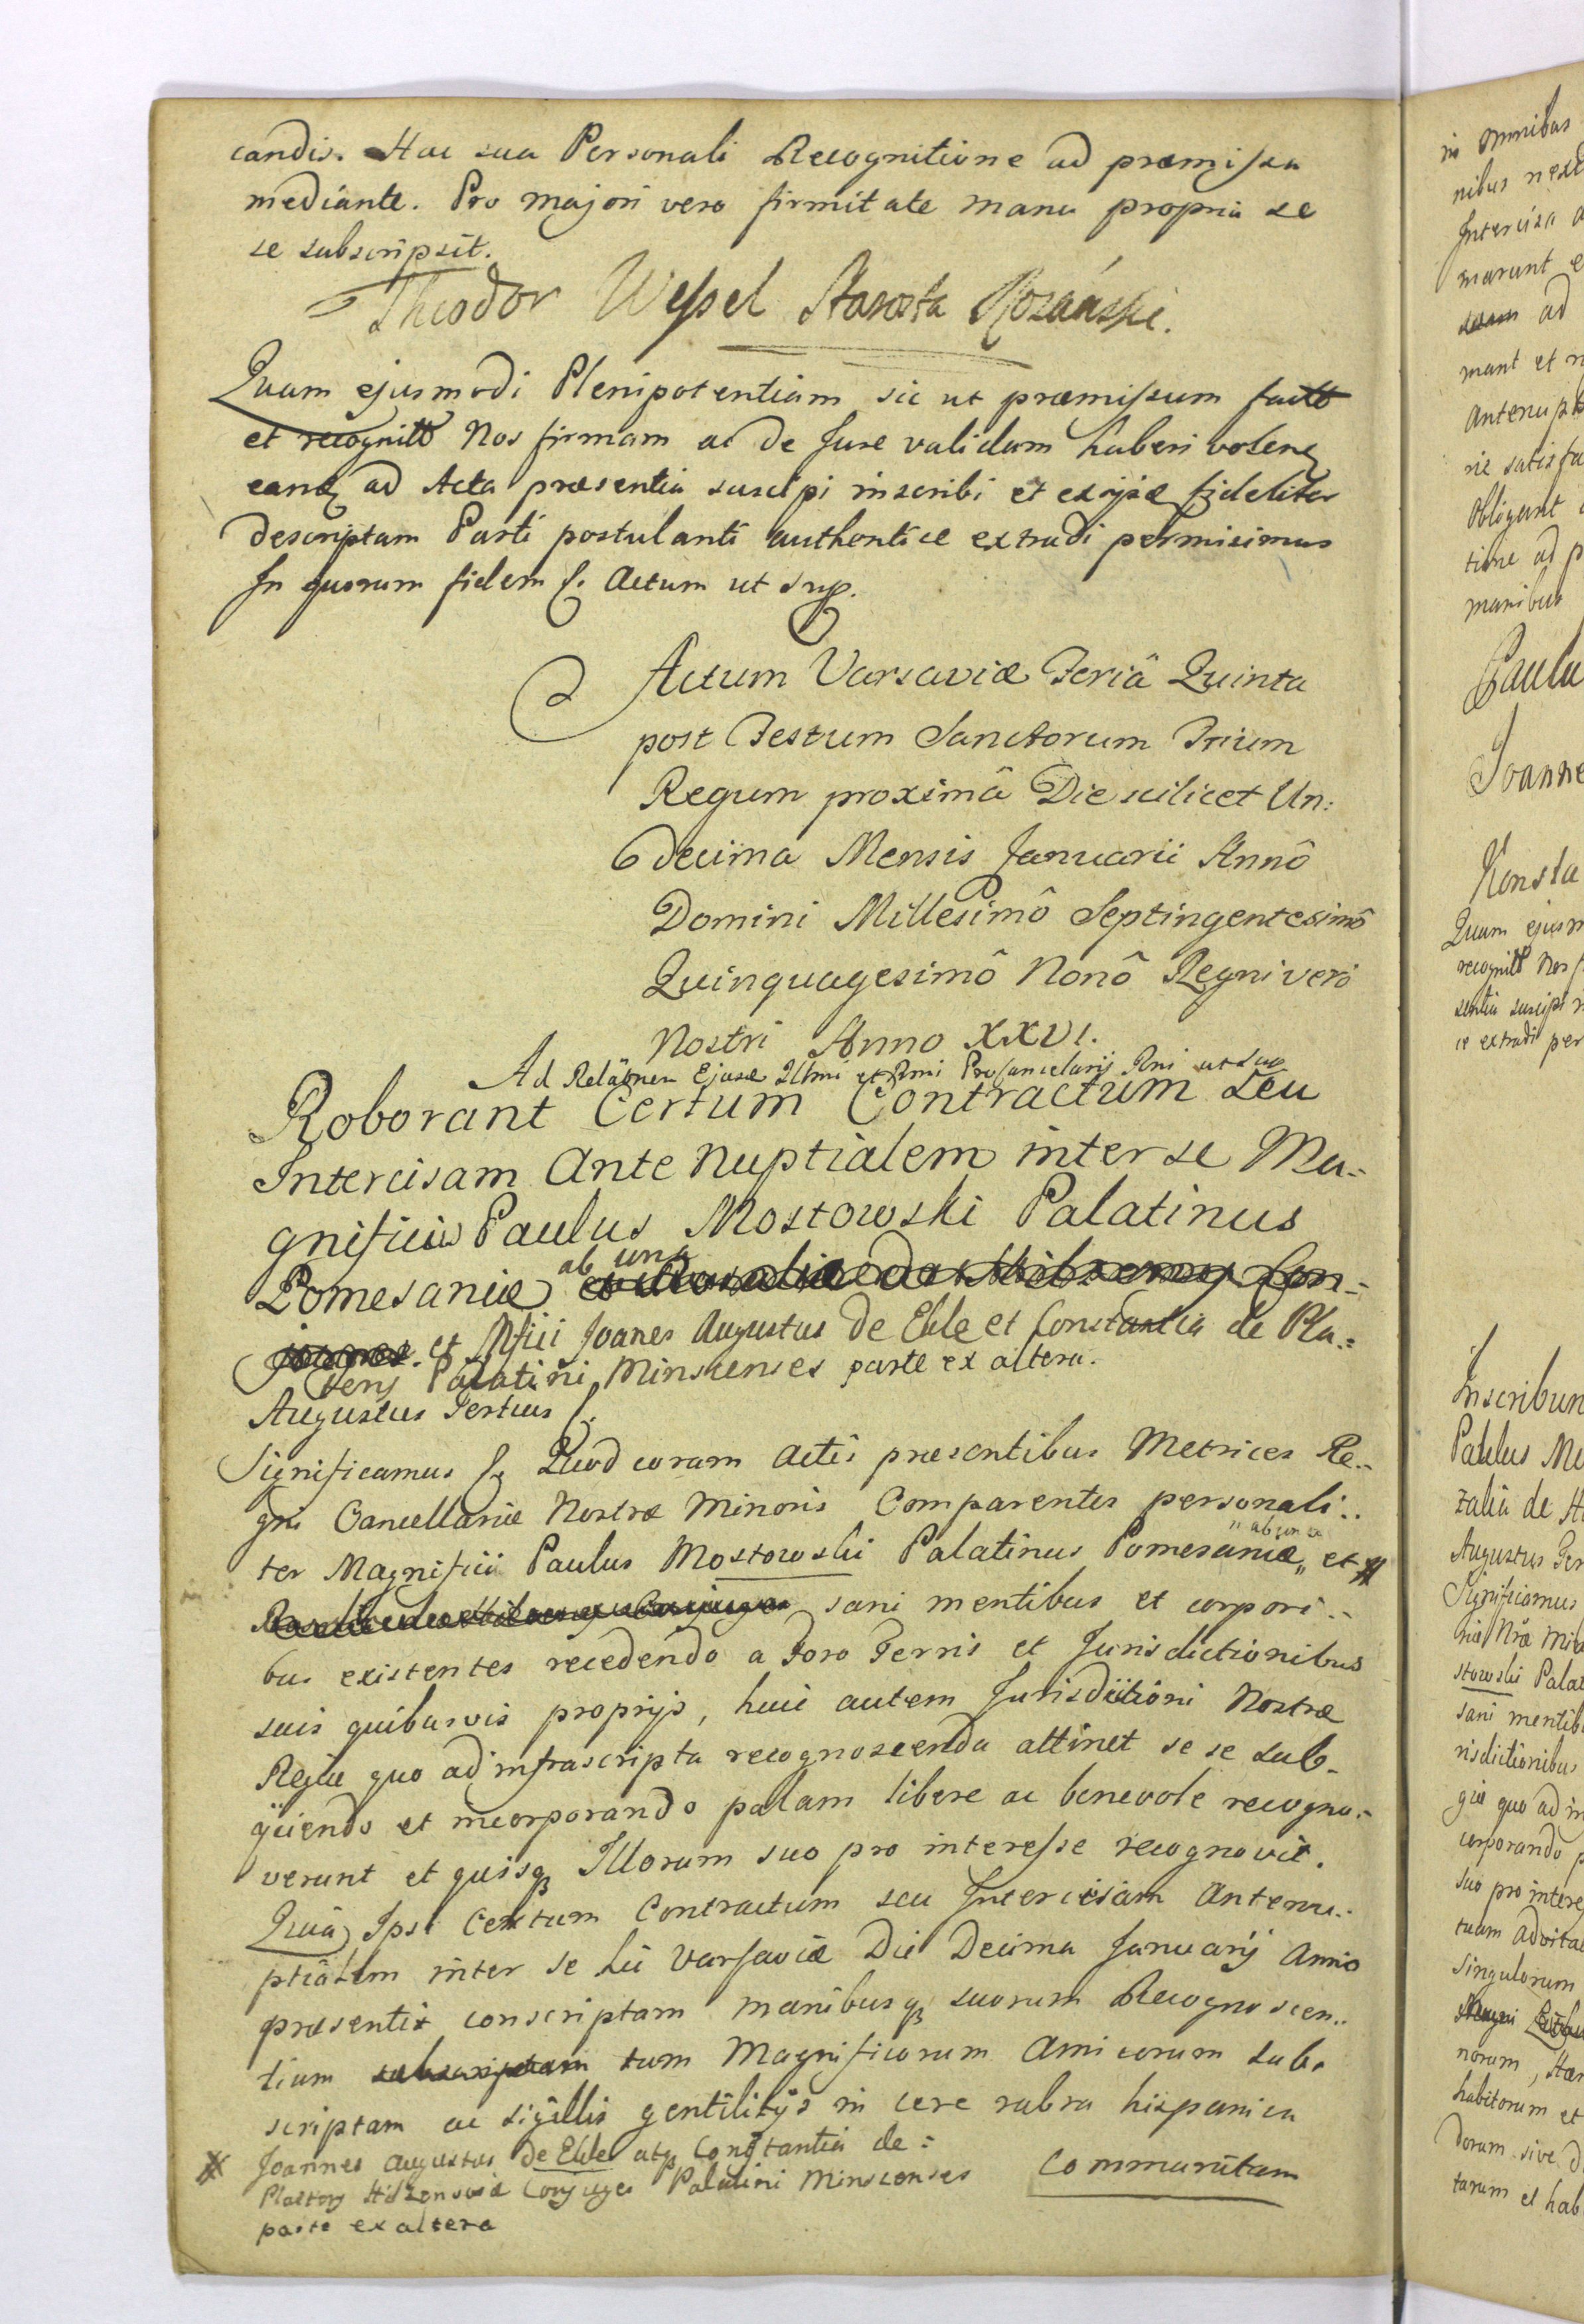 candis. Hac sua Personali Recognitione ad præmissa
mediante. Pro majori vero firmitate manu propria se
se subscripsit.
Theodor Wessel Starosta Rożański.
Quam ejusmodi Plenipotentiam sic ut præmissum
et Nos firmam ac de Jure validam haberi volen
ad Acta præsentia suscipi inscribi et fideliter
descriptam Parti postulanti authentice extradi permisimus
In quorum fidem Actum ut sup.
Actum Varsaviæ Feriâ Quinta
post Festum Sanctorum Trium
Regum proximâ Die scilicet Un:
decima Mensis Januarii Annô
Domini Millesimô Septingentesimô
Quinquagesimô Nonô Regni verò
Nostri Anno XXVI.
Ad
Roborant Certum Contractum seu
Intercisam Ante Nuptialem inter se Ma-
gnificus Paulus Mostowski Palatinus
Pomesaniæ ab una
et Mfici Joanes Augustus de Eble et Constantia de Pla:
Palatini Minscenses parte ex altera.
Augustus Tertius
Significamus Quod coram Actis præsentibus Metrices Re-
gni Cancellariæ Nostræ Minoris Comparentes personali:
ter Magnifici Paulus Mostowski Palatinus Pomesaniæ „ab una„ et #
sani mentibus et corpori:
bus existentes recedendo a Foro Terris et Jurisdictionibus
suis quibusvis proprijs, huic autem Jurisdictioni Nostræ
Regiæ quo ad infrascripta recognoscenda attinet se se sub-
ijciendo et incorporando palam libere ac benevole recogno:
verunt et quisq; Illorum suo pro interesse recognovit.
Quia Ipsi Certum Contractum seu Intercisam Antenu:
ptialem inter se hic Varsaviæ Die Decima Januarij Anno
præsenti conscriptam manibusq; suorum Recognoscen:
tium subscriptam tum Magnificorum Amicorum sub-
scriptam ac sigillis gentilitijs in cere rubra hispanica
Communitam
# Joannes Augustus De Eble atq; Constantia de:
Conjuges Palatini Minscenses
parte ex altera
in omnibus
nibus
Intercisa
ad
mant et
rie
Obligant
tione ad
manibus
Paulu
Joanne
Konsta
Quam ejusm
Nos
sentia suscipi
extradi per
Inscribun
Paulus Mo
zalia de
Augustus Ter
Significamus
stowski Palat
sani mentib
risdictionibus
giæ quo ad in
corporando p
suo pro intere
singulorum
norum,
habitorum et
dorum sive
tarum et hab